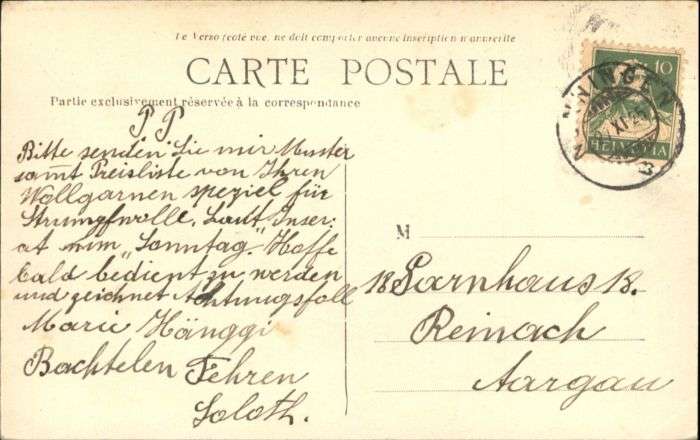 Le Verso (coté vue, ne doit comporter aucune inscription n'anurcite
CARTE POSTALE
Partie exclusivement réservée à la correspondance
P. P.
Bitte senden Sie mir Muster
samt Preisliste von Ihren
Wollgarnen speziel für
Strumpfwolle. Laut Inser:
at mim "Sonntag." Hoffe
bald bedient zu werden
und zeichnet Achtungsfoll
Marie Hänggi
Bachtelen Fehren
Soloth.
M
18 Garnhaus 18.
Reinach
Aargau
10
HELVETIA
NUNNINGEN
XI.21